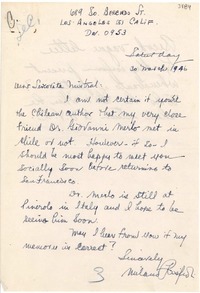 LOS ANGELES (5) CALIF.
Saturday
30 March 1946
Dear Señorita Mistral,
I am not certain if you're
the Chilean author that my very close
friend Dr. Giovanni Merlo met in
Chile or not. However - if so I
should be most happy to meet you
socially soon before returning to
San Francisco.
Dr. Merlo is still at
Pinerolo in Italy and I hope to be
seeing him soon.
May I hear from you if my
memories is correct?
Sincerely,